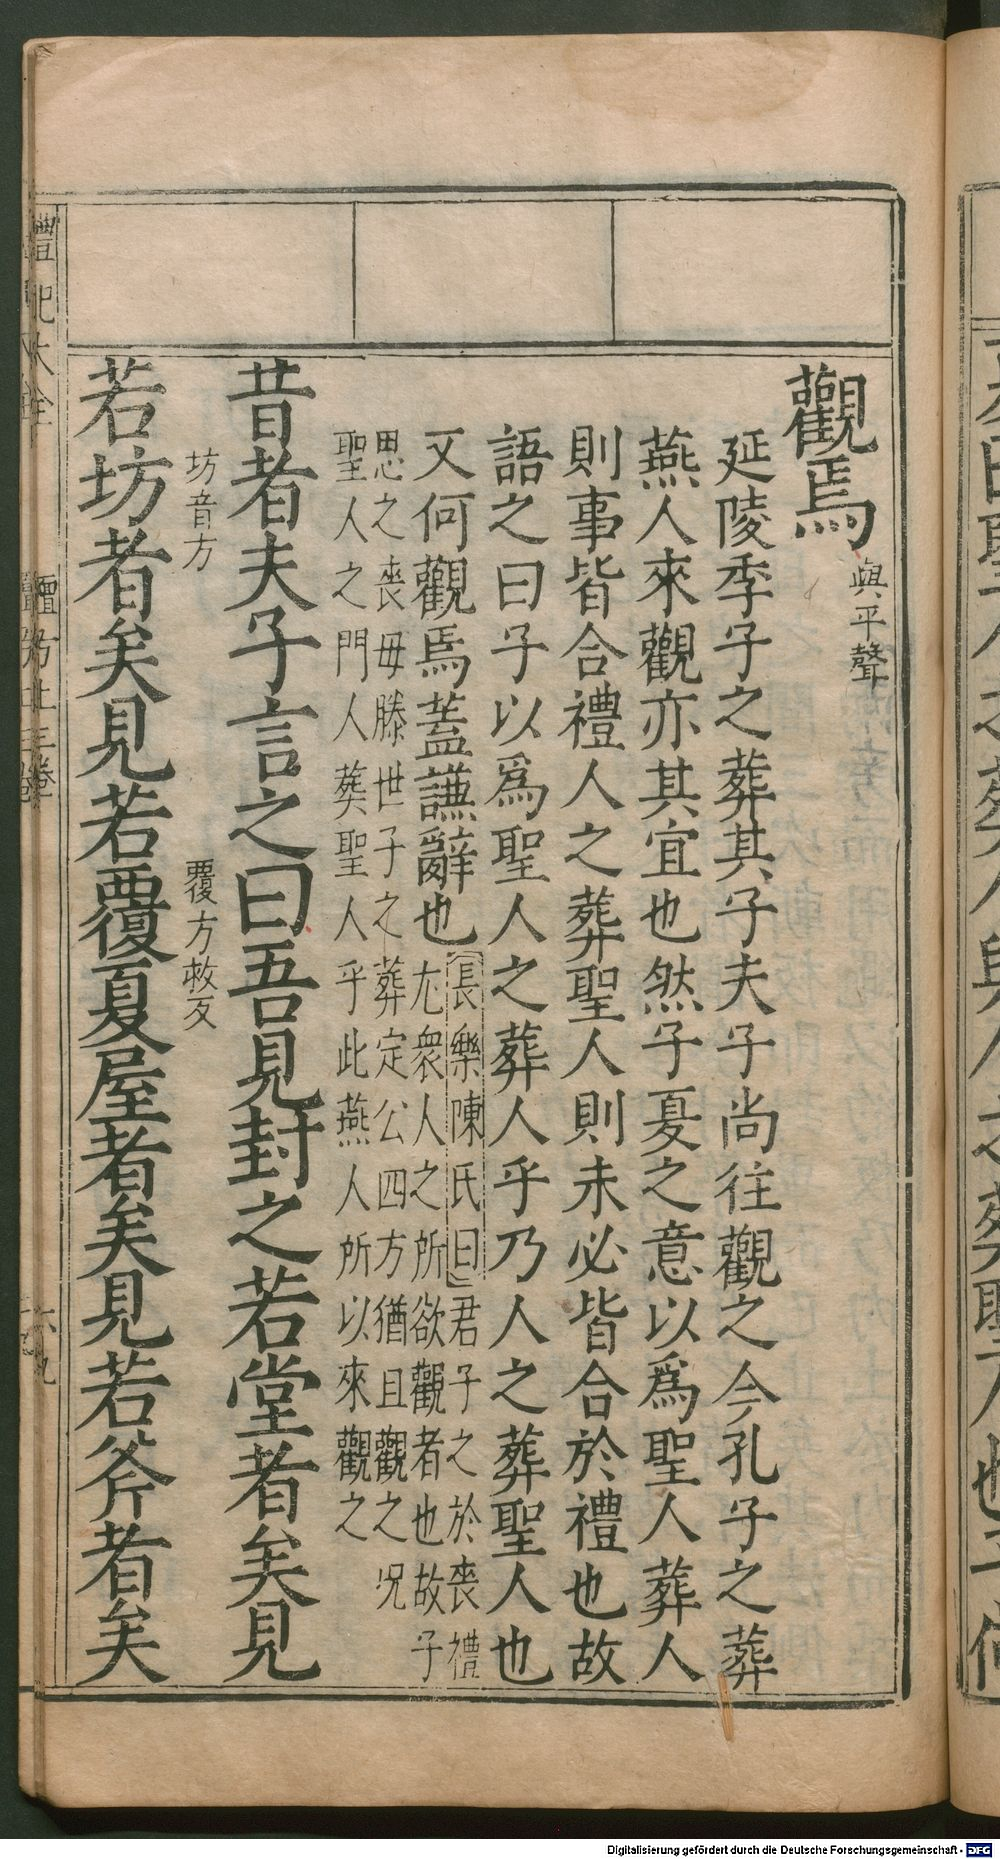 觀焉與平聲
延陵季子之葬其子夫子尚往觀之今孔子之葬
燕人來觀亦其宜也然子夏之意以爲聖人葬人
則事皆合禮人之葬聖人則未必皆合於禮也故
語之曰子以爲聖人之葬人乎乃人之葬聖人也
又何觀焉蓋謙辭也長樂陳氏曰君子之於喪禮
尤衆人之所欲觀者也故子
思之喪毋滕世子之葬定公四方猶且觀之況
聖人之門人葬聖人乎此燕人所以來觀之
昔者夫子言之曰吾見封之若堂者矣見
坊音方
覆方救反
若坊者矣見若覆夏屋者矣見若斧者矣
禮記大全
檀弓上三卷
六九
Digitalisierung gefördert durch die Deutsche Forschungsgemeinschaft - DFG